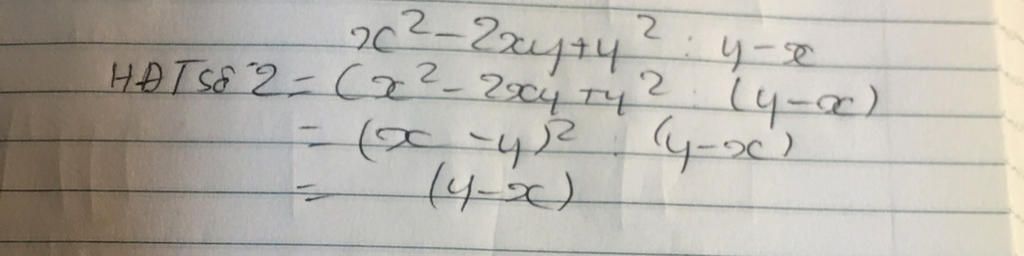 x² - 2xy + y² : y - x
HĐT số 2 = (x² - 2xy + y² : (y - x)
= (x - y)² : (y - x)
= (y - x)